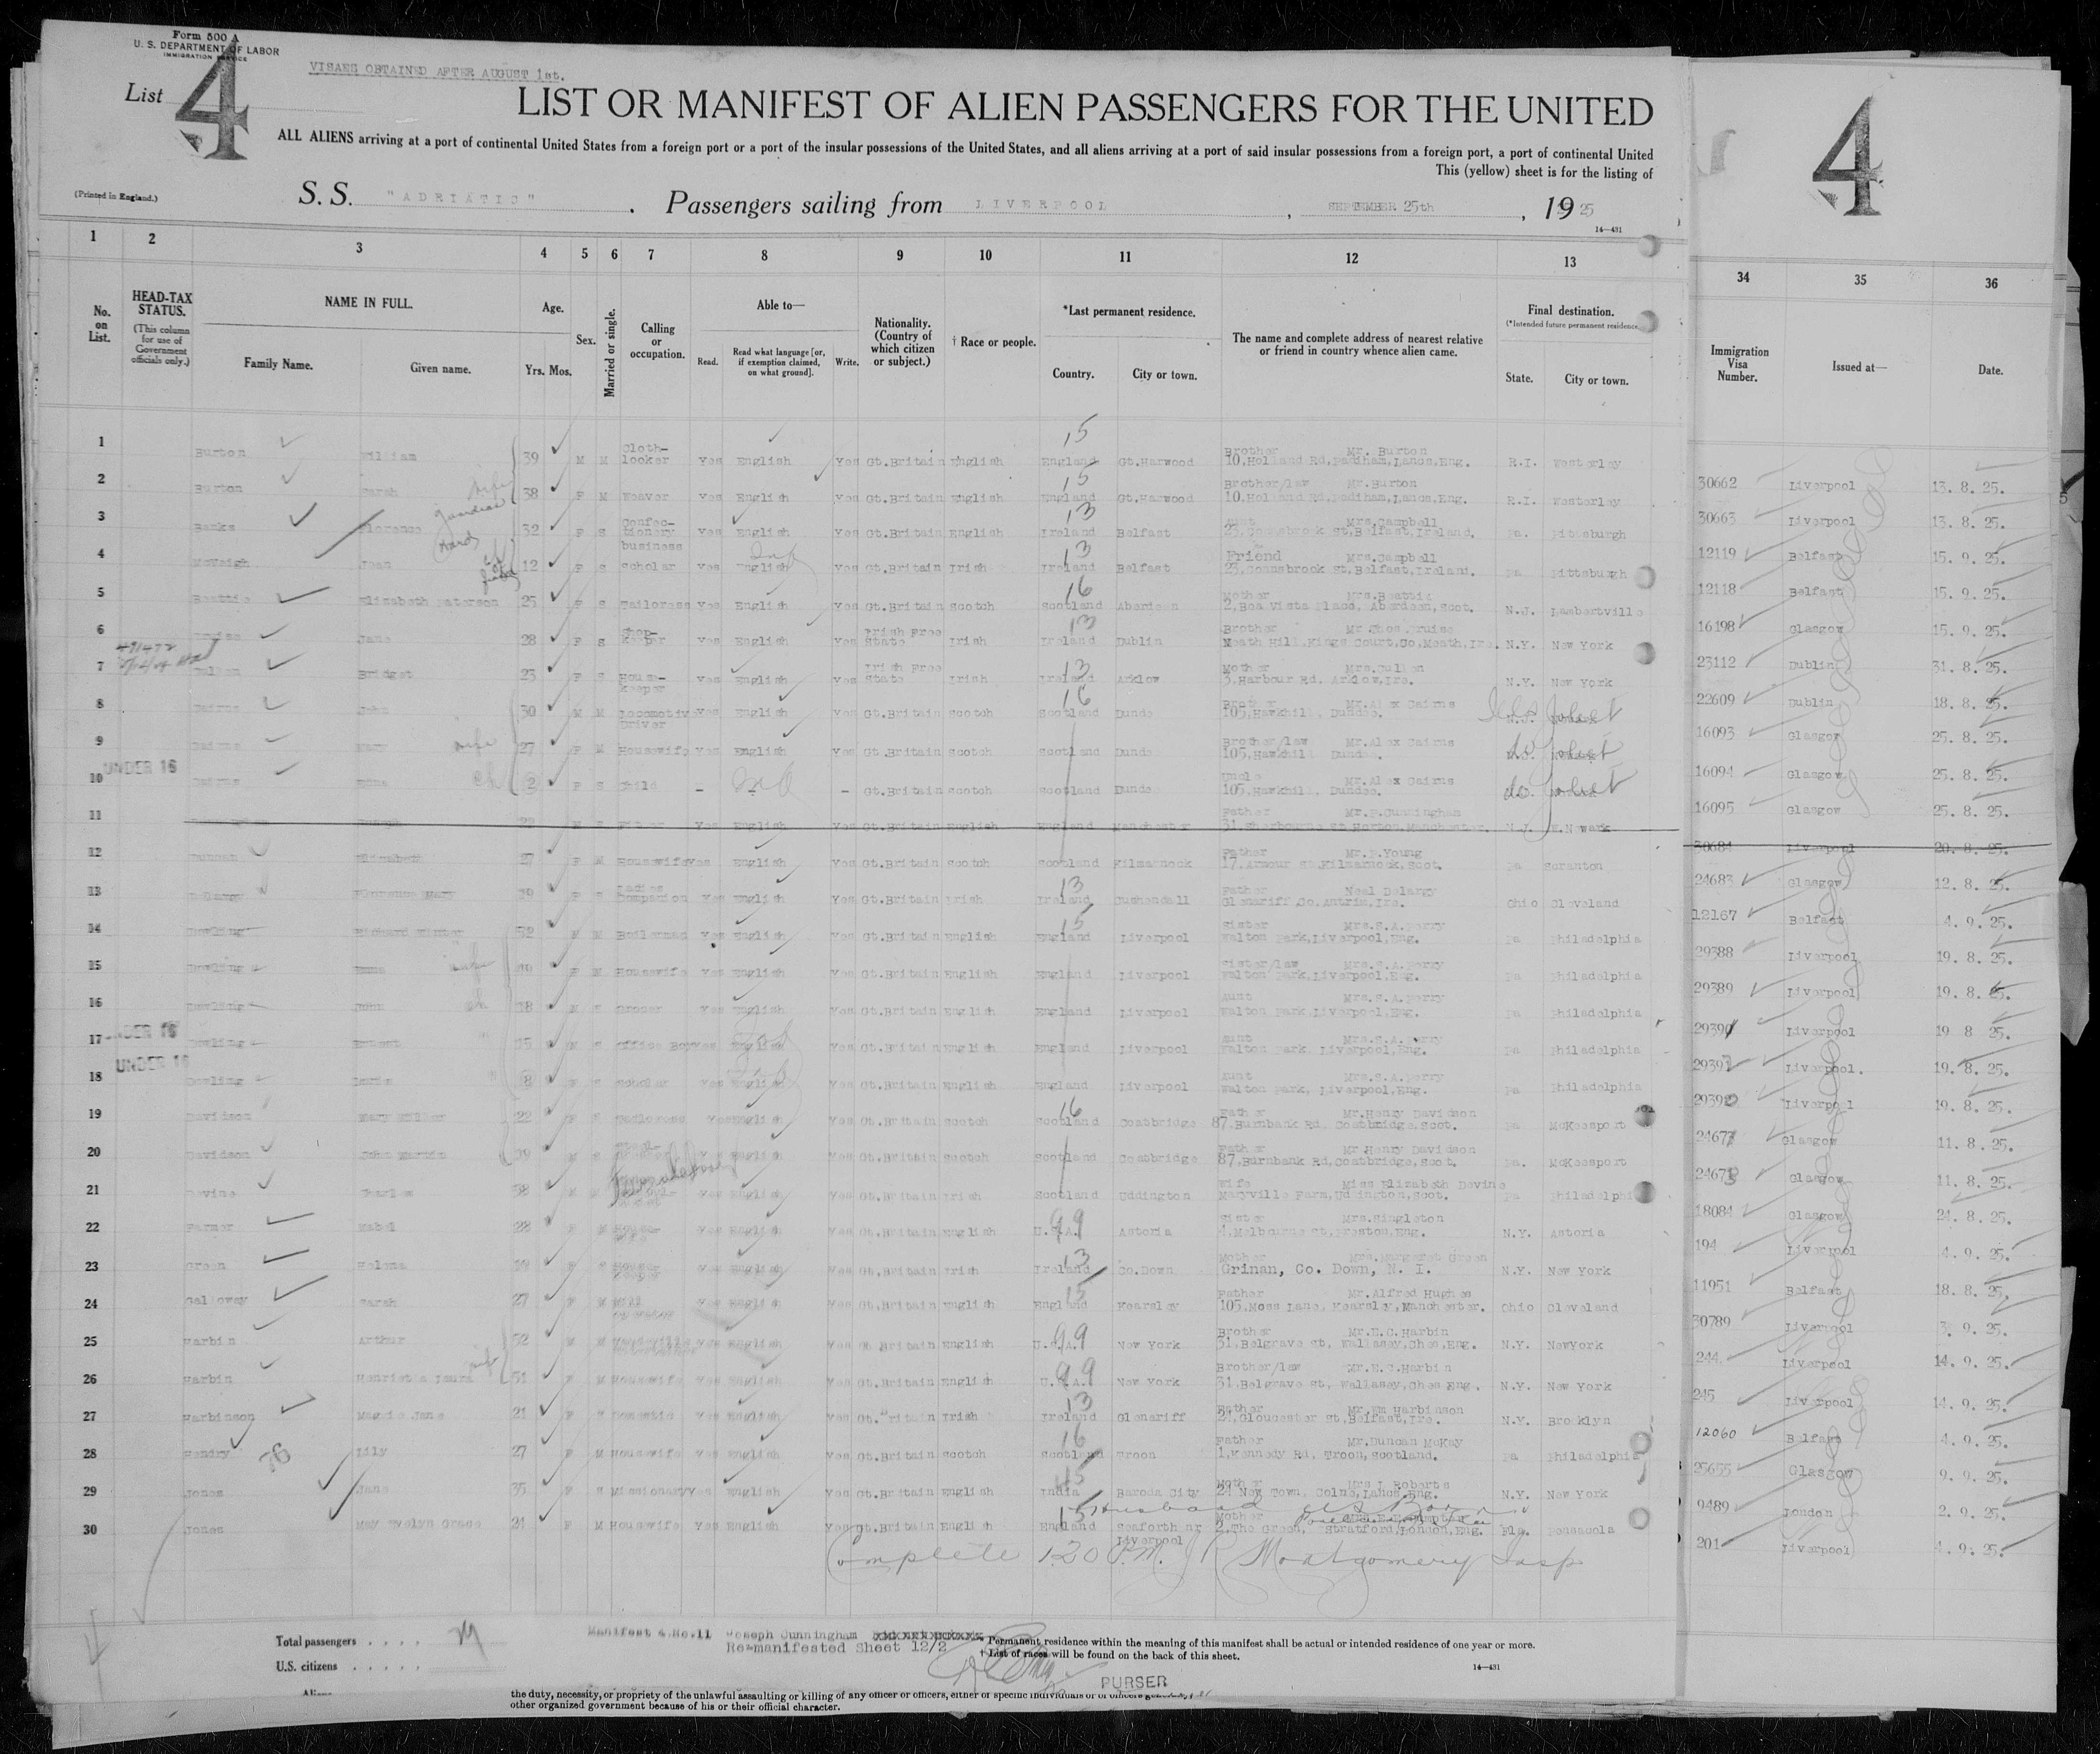 Form 500 A
U. S. DEPARTMENT OF LABOR
IMMIGRATION SERVICE
VISAES OBTAINED AFTER AUGUST 1st.
List 4
LIST OR MANIFEST OF ALIEN PASSENGERS FOR THE UNITED
4
ALL ALIENS arriving at a port of continental United States from a foreign port or a port of the insular possessions of the United States, and all aliens arriving at a port of said insular possessions from a foreign port, a port of continental United
This (yellow) sheet is for the listing of
(Printed in England.)
S. S. "ADRIATIC" . Passengers sailing from LIVERPOOL , SEPTEMBER 25th , 1925
14—431
1 2 3 4 5 6 7 8 9 10 11 12 13 34 35 36
No. on List.
HEAD-TAX STATUS. (This column for use of Government officials only.)
NAME IN FULL. Family Name. Given name.
Age. Yrs. Mos.
Sex.
Married or single.
Calling or occupation.
Able to— Read. Read what language [or, if exemption claimed, on what ground]. Write.
Nationality. (Country of which citizen or subject.)
† Race or people.
*Last permanent residence. Country. City or town.
The name and complete address of nearest relative or friend in country whence alien came.
Final destination. (*Intended future permanent residence.) State. City or town.
Immigration Visa Number.
Issued at—
Date.
1 Burton William 39 M M Cloth-looker Yes English Yes Gt.Britain English England 15 Gt.Harwood Brother Mr. Burton 10,Holland Rd,Padiham,Lancs,Eng. R.I. Westerley 30662 Liverpool 13. 8. 25.
2 Burton Sarah wife 38 F M Weaver Yes English Yes Gt.Britain English England 15 Gt.Harwood Brother/law Mr.Burton 10,Holland Rd,Padiham,Lancs,Eng. R.I. Westerley 30663 Liverpool 13. 8. 25.
3 Banks Florence guardian 32 F S Confec-tionery business Yes English Yes Gt.Britain English Ireland 13 Belfast Aunt Mrs.Campbell 23,Connsbrook St,Belfast,Ireland. Pa. Pittsburgh 12119 Belfast 15. 9. 25.
4 McVeigh Joan ward 12 F S Scholar Yes English Yes Gt.Britain Irish Ireland 13 Belfast Friend Mrs.Campbell 23,Connsbrook St,Belfast,Ireland. Pa Pittsburgh 12118 Belfast 15. 9. 25.
5 Beattie Elizabeth Paterson 25 F S Tailoress Yes English Yes Gt.Britain Scotch Scotland 16 Aberdeen Mother Mrs.Beattie 2,Boa Vista Place, Aberdeen,Scot. N.J. Lambertville 16198 Glasgow 15. 9. 25.
6 Jane 28 F S Shop-keeper Yes English Yes Irish Free State Irish Ireland 13 Dublin Brother Mr Thos.Cruise Meath Hill,Kings Court,Co,Meath,Ire. N.Y. New York 23112 Dublin 31. 8. 25.
7 Cullen Bridget 23 F S House-keeper Yes English Yes Irish Free State Irish Ireland 13 Arklow Mother Mrs.Cullen 3,Harbour Rd, Arklow,Ire. N.Y. New York 22609 Dublin 18. 8. 25.
8 Cairns John 30 M M Locomotive Driver Yes English Yes Gt.Britain Scotch Scotland 16 Dunde Brother Mr.Alex Cairns 105,Hawkhill, Dundee. Ills Joliet 16093 Glasgow 25. 8. 25.
9 Cairns Mary wife 27 F M Housewife Yes English Yes Gt.Britain Scotch Scotland Dunde Brother/law Mr.Alex Cairns 105,Hawkhill Dundee. do Joliet 16094 Glasgow 25. 8. 25.
UNDER 16
10 Cairns Edna ch 2 F S Child - - - Gt.Britain Scotch Scotland Dunde Uncle Mr.Alex Cairns 105,Hawkhill, Dundee. do Joliet 16095 Glasgow 25. 8. 25.
11 Yes English Yes Gt.Britain English England Manchester Father Mr.P.Cunningham N.J. E.Newark 30684 Liverpool 20. 8. 25.
12 Duncan Elizabeth 27 F M Housewife Yes English Yes Gt.Britain Scotch Scotland Kilmarnock Father Mr.P.Young 17,Armour St,Kilmarnock,Scot. Pa Scranton 24683 Glasgow 12. 8. 25.
13 Delargy Florence Mary 19 F S Ladies Companion Yes English Yes Gt.Britain Irish Ireland 13 Cushendall Father Neal Delargy Glenariff,Co,Antrim,Ire. Ohio Cleveland 12167 Belfast 4. 9. 25.
14 Dowling 52 M M Boilerman Yes English Yes Gt.Britain English England 15 Liverpool Sister Mrs.S.A.Perry Walton Park,Liverpool,Eng. Pa Philadelphia 29388 Liverpool 19. 8. 25.
15 Dowling wife F M Housewife Yes English Yes Gt.Britain English England Liverpool Sister/law Mrs.S.A.Perry Walton Park,Liverpool,Eng. Pa Philadelphia 29389 Liverpool 19. 8. 25.
16 Dowling John ch 18 M S Grocer Yes English Yes Gt.Britain English England Liverpool Aunt Mrs.S.A.Perry Walton Park,Liverpool,Eng. Pa Philadelphia Liverpool 19 8 25.
UNDER 16
17 Dowling 15 M S Office Boy Yes English Yes Gt.Britain English England Liverpool Aunt Mrs.S.A.Perry Walton Park, Liverpool,Eng. Pa Philadelphia Liverpool. 19. 8. 25.
UNDER 16
18 Dowling Doris 8 F S Scholar Yes English Yes Gt.Britain English England Liverpool Aunt Mrs.S.A.Perry Walton Park, Liverpool,Eng. Pa Philadelphia Liverpool 19. 8. 25.
19 Davidson Mary Miller 22 F S Tailoress Yes English Yes Gt.Britain Scotch Scotland 16 Coatbridge Father Mr.Henry Davidson 87,Burnbank Rd, Coatbridge,Scot. Pa McKeesport Glasgow 11. 8. 25.
20 Davidson John Martin 19 M S Yes English Yes Gt.Britain Scotch Scotland Coatbridge Father Mr Henry Davidson 87,Burnbank Rd,Coatbridge,Scot. Pa. McKeesport Glasgow 11. 8. 25.
21 Devine Charles 58 M M Yes English Yes Gt.Britain Irish Scotland Uddington Wife Miss Elizabeth Devine Maryville Farm,Uddington,Scot. Pa Philadelphi 18084 Glasgow 24. 8. 25.
22 Farmer Mabel 28 F M House-wife Yes English Yes Gt.Britain English U.S.A. 99 Astoria Sister Mrs.Singleton 4,Melbourne St,Preston,Eng. N.Y. Astoria 194 Liverpool 4. 9. 25.
23 Green Helena 19 F S House-keeper Yes English Yes Gt.Britain Irish Ireland 13 Co.Down Mother Mrs.Margaret Green Grinan, Co. Down, N. I. N.Y. New York 11951 Belfast 18. 8. 25.
24 Galloway Sarah 27 F M Mill Yes English Yes Gt.Britain English England 15 Kearsley Father Mr.Alfred Hughes 105,Moss Lane, Kearsley,Manchester. Ohio Cleveland 30789 Liverpool 3. 9. 25.
25 Harbin Arthur 52 M M Yes English Yes Gt.Britain English U.S.A. 99 New York Brother Mr.E.C.Harbin 31,Belgrave St, Wallasey,Ches,Eng. N.Y. NewYork 244 Liverpool 14. 9. 25.
26 Harbin Henrietta Laura wife 51 F M Housewife Yes English Yes Gt.Britain English U.S.A. 99 New York Brother/law Mr.E.C.Harbin 31,Belgrave St, Wallasey,Ches Eng. N.Y. New York 245 Liverpool 14. 9. 25.
27 Harbinson Maggie Jane 21 F S Domestic Yes English Yes Gt.Britain Irish Ireland 13 Glenariff Father Mr.Wm Harbinson 24,Gloucester St,Belfast,Ire. N.Y. Broklyn 12060 Belfast 4. 9. 25.
28 Hendry Lily 27 F M Housewife Yes English Yes Gt.Britain Scotch Scotland 16 Troon Father Mr.Duncan McKay 1,Kennedy Rd, Troon,Scotland. Pa Philadelphia 25655 Glasgow 9. 9. 25.
29 Jones Jane 35 F S Missionary Yes English Yes Gt.Britain English India 15 Baroda City Mother Mrs I Roberts 24 New Town, Colne,Lancs,Eng. N.Y. New York 9489 London 2. 9. 25.
30 Jones May Evelyn Grace 24 F M Housewife Yes English Yes Gt.Britain English England 15 Seaforth nr Liverpool Husband Mother 2,The Green, Stratford,London,Eng. Fla. Pensacola 201 Liverpool 4. 9. 25.
Complete 1.20 P.M. J R Montgomery Insp
Total passengers . . . .
U.S. citizens . . . . .
Manifest 4.No.11 Joseph Cunningham
Re-manifested Sheet 12/2
* Permanent residence within the meaning of this manifest shall be actual or intended residence of one year or more.
† List of races will be found on the back of this sheet.
14—431
PURSER
the duty, necessity, or propriety of the unlawful assaulting or killing of any officer or officers, either of specific individuals or of officers
other organized government because of his or their official character.